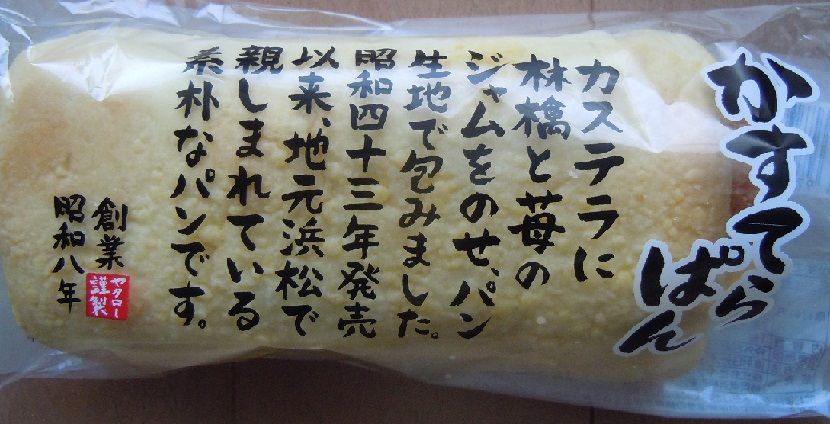 かすてら
ぱん
カステラに
林檎と苺の
ジャムをのせ、パン
生地で包みました。
昭和四十三年発売
以来、地元浜松で
親しまれている
素朴なパンです。
創業
昭和八年
ヤタロー
謹製